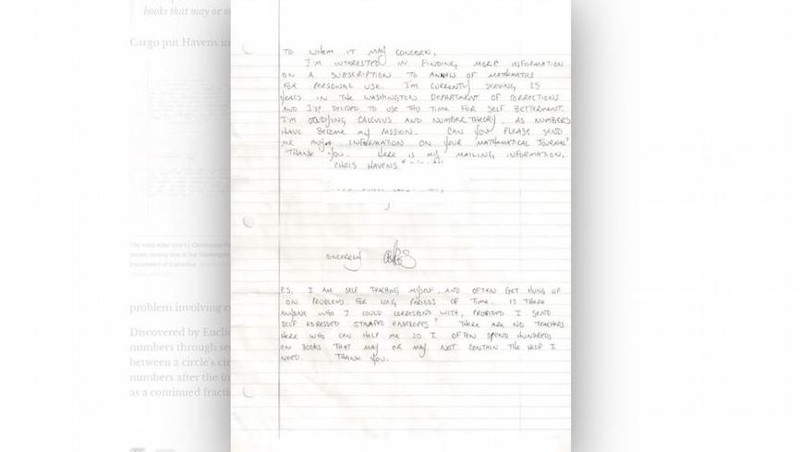 books that may or m
Cargo put Havens in
TO WHOM IT MAY CONCERN,
I'M INTERESTED IN FINDING MORE INFORMATION
ON A SUBSCRIPTION TO ANNALS OF MATHEMATICS
FOR PERSONAL USE. I'M CURRENTLY SERVING 25
YEARS IN THE WASHINGTON DEPARTMENT OF CORRECTIONS
AND I'VE DECIDED TO USE THIS TIME FOR SELF BETTERMENT.
I'M STUDYING CALCULUS AND NUMBER THEORY, AS NUMBERS
HAVE BECOME MY MISSION. CAN YOU PLEASE SEND
ME ANY INFORMATION ON YOUR MATHEMATICAL JOURNAL?
THANK YOU. HERE IS MY MAILING INFORMATION,
CHRIS HAVENS
SINCERELY
P.S. I AM SELF TEACHING MYSELF, AND OFTEN GET HUNG UP
ON PROBLEMS FOR LONG PERIODS OF TIME. IS THERE
ANYONE WHO I COULD CORRESPOND WITH, PROVIDED I SEND
SELF ADRESSED STAMPED ENVELOPES? THERE ARE NO TEACHERS
HERE WHO CAN HELP ME SO I OFTEN SPEND HUNDREDS
ON BOOKS THAT MAY OR MAY NOT CONTAIN THE HELP I
NEED. THANK YOU.
problem involving c
Discovered by Euclid
numbers through se
between a circle's cir
numbers after the
as a continued fractio